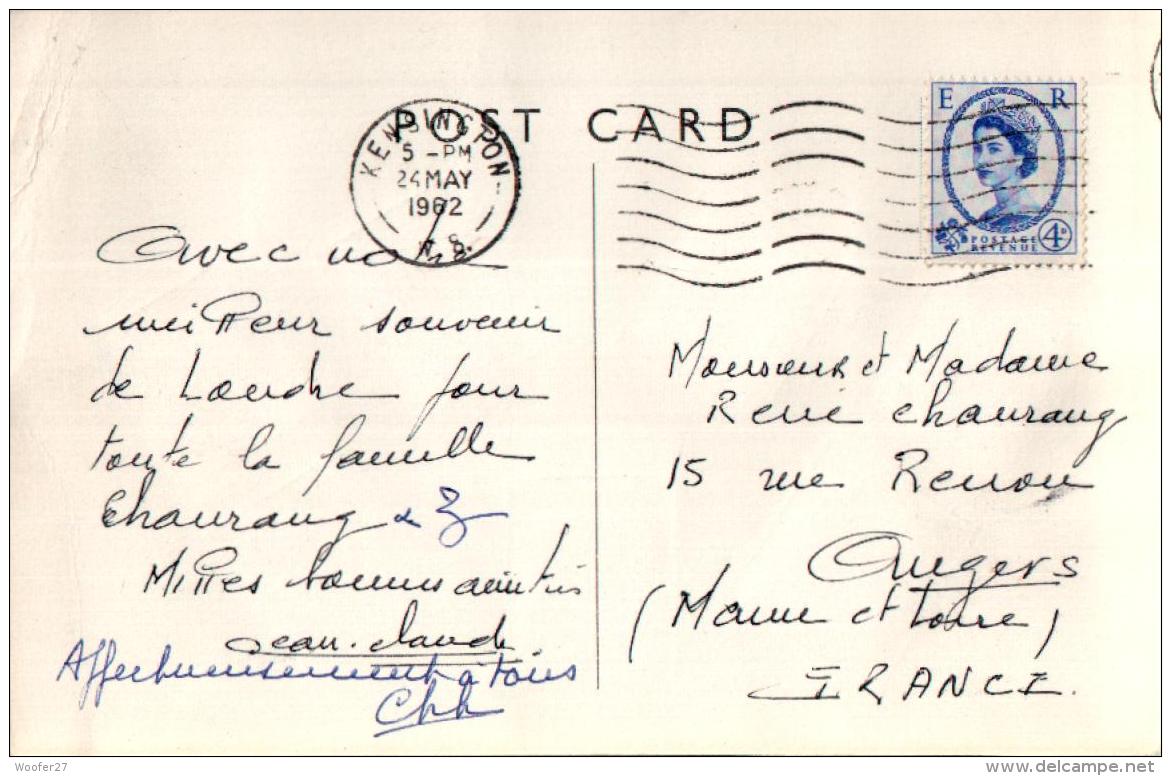 POST CARD
KENSINGTON
5 - PM
24 MAY
1962
W. 8.
E R
POSTAGE
REVENUE
4D
Avec notre
meilleur souvenir
de Londre pour
toute la famille
Chaurang &
Milles bonnes amitiés
Jean-Claude
Affectueusement à tous
Monsieur et Madame
René Chaurang
15 rue Renou
Angers
(Maine et Loire)
FRANCE.
Woofer27
www.delcampe.net